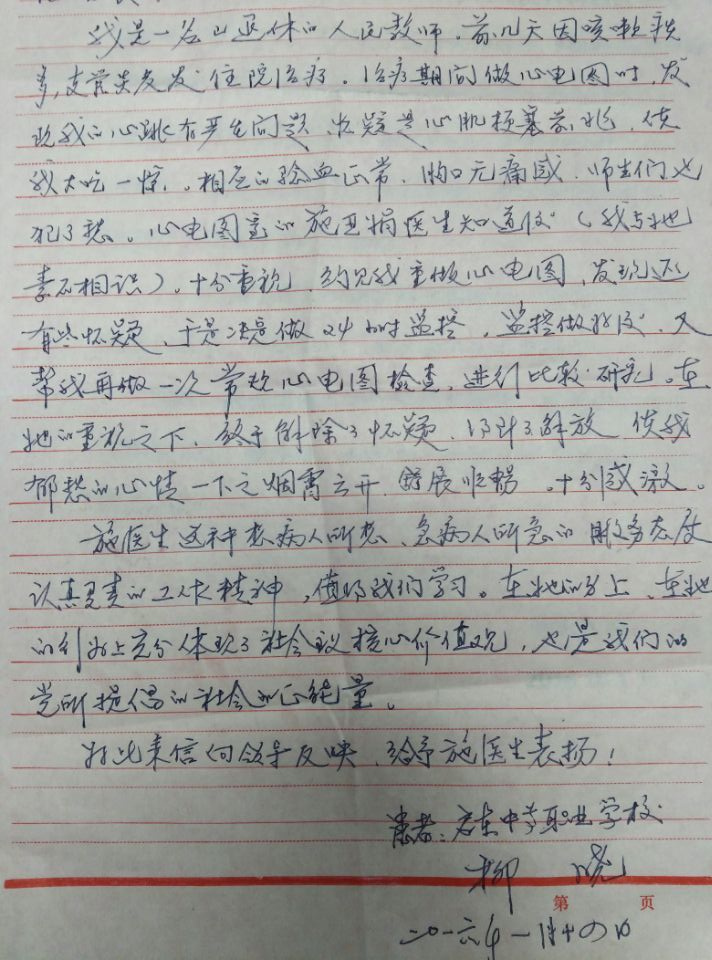 我是一名已退休的人民教师，前几天因咳嗽痰
多，支管炎复发住院治疗。治疗期间做心电图时，发
现我的心跳有严重问题，怀疑是心肌梗塞前兆，使
我大吃一惊。相应的验血正常，胸口无痛感，师生们也
犯了愁。心电图室的施卫娟医生知道后（我与她
素不相识），十分重视，约见我重做心电图，发现还
有些怀疑，于是决定做24小时监控，监控做好后，又
帮我再做一次常规心电图检查，进行比较研究。在
她的重视之下，终于解除了怀疑，得到了解放，使我
郁愁的心情一下之烟雾云开，舒展顺畅。十分感激。
施医生这种想病人所想、急病人所急的服务态度
认真负责的工作精神，值得我们学习。在她的身上、在她
的行为上充分体现了社会主义核心价值观，也是我们的
党所提倡的社会的正能量。
为此来信向领导反映，给予施医生表扬！
患者：启东中等职业学校
柳 晓
第 页
二〇一六年一月十四日